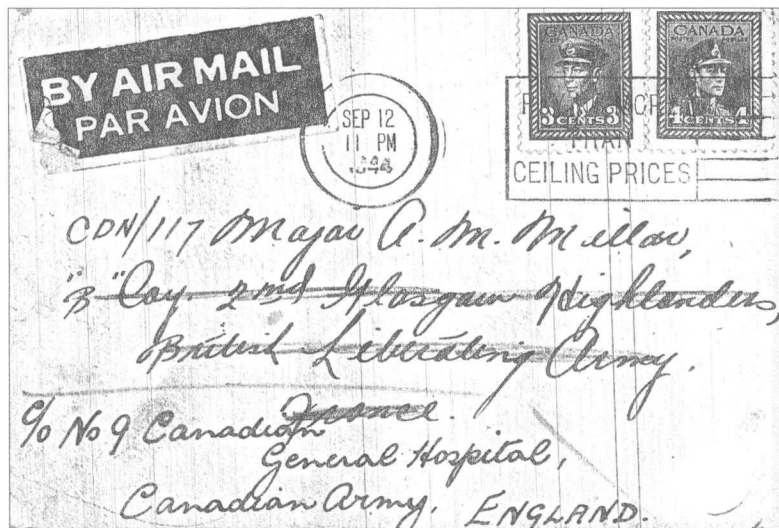 BY AIR MAIL
PAR AVION
SEP 12
11 PM
1944
CANADA
POSTES POSTAGE
3 CENTS 3
CANADA
POSTES POSTAGE
4 CENTS 4
THAN
CEILING PRICES
CDN/117 Major A. M. Millar,
"B" Coy. 2nd Glasgow Highlanders,
British Liberating Army.
France.
c/o No 9 Canadian
General Hospital,
Canadian Army, ENGLAND.